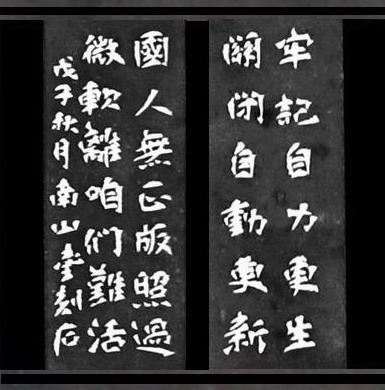 牢記自力更生
關閉自動更新
國人無正版照過
微軟離咱們難活
戊子秋月南山刻石